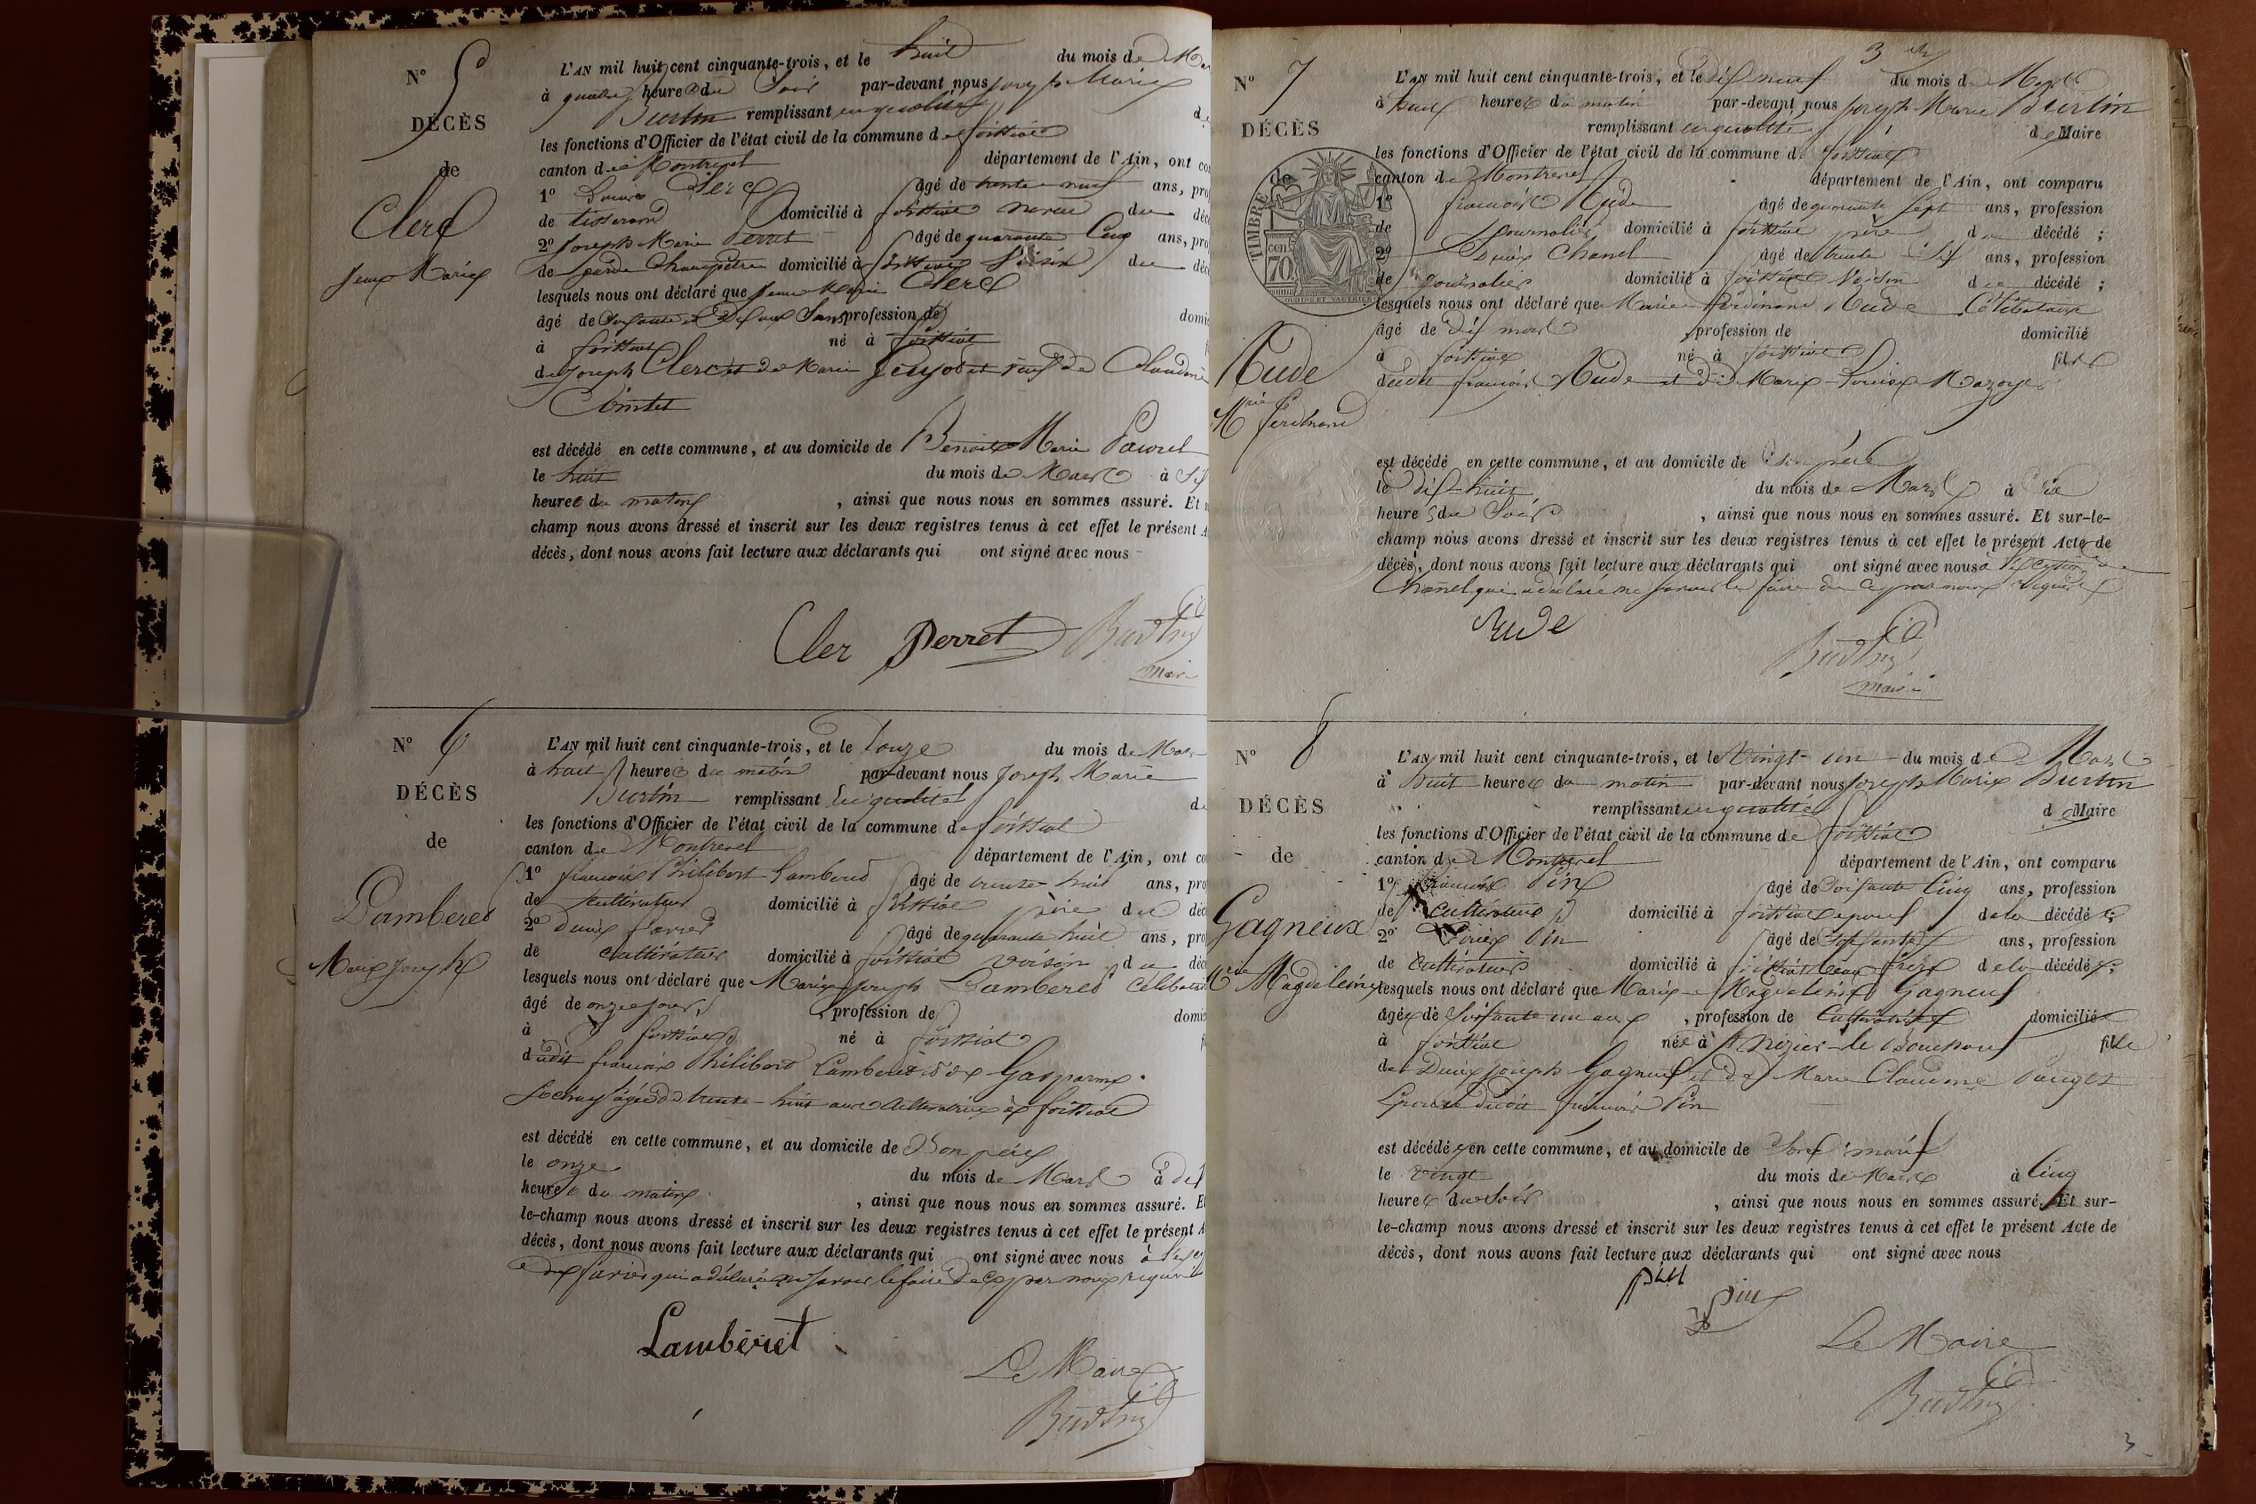 N° 5
DÉCÈS
de
Clerc
Jean Marie
L'AN mil huit cent cinquante-trois, et le huit du mois de
à quatre heures du Soir par-devant nous Joseph Marie
Burtin remplissant en qualité
les fonctions d'Officier de l'état civil de la commune de foissiat
canton de Montrevel département de l'Ain, ont
1° Clerc âgé de trente-neuf ans,
de tisserand domicilié à foissiat neveu du
2° Joseph Marie Perret âgé de quarante Cinq ans,
de garde Champêtre domicilié à foissiat Voisin du
lesquels nous ont déclaré que Jean Marie Clerc
âgé de Soixante et Dix ans Sans profession de
à foissiat né à foissiat
de Joseph Clerc et de Marie et veuf de Claudine
est décédé en cette commune, et au domicile de Benoit Marie
le huit du mois de Mars à Six
heures du matin, ainsi que nous nous en sommes assuré. Et
champ nous avons dressé et inscrit sur les deux registres tenus à cet effet le présent
décès, dont nous avons fait lecture aux déclarants qui ont signé avec nous
Cler Perret Burtin
maire
N° 6
DÉCÈS
de
Lamberet
Marie Joseph
L'AN mil huit cent cinquante-trois, et le Douze du mois de Mars
à huit heures du matin par-devant nous Joseph Marie
Burtin remplissant en qualité
les fonctions d'Officier de l'état civil de la commune de foissiat
canton de Montrevel département de l'Ain, ont
1° françois Philibert Lamberet âgé de trente-huit ans,
de cultivateur domicilié à foissiat père du
2° Denis âgé de quarante huit ans,
de cultivateur domicilié à foissiat voisin du
lesquels nous ont déclaré que Marie Joseph Lamberet
âgé de onze jours profession de
à foissiat né à foissiat
dudit françois Philibert Lamberet et de Gasparine
âgée de trente-huit ans Cultivatrice à foissiat
est décédé en cette commune, et au domicile de Son père
le onze du mois de Mars à dix
heures du matin, ainsi que nous nous en sommes assuré.
le-champ nous avons dressé et inscrit sur les deux registres tenus à cet effet le présent
décès, dont nous avons fait lecture aux déclarants qui ont signé avec nous
qui a déclaré ne savoir le faire de ce par nous requis
Lamberet
Le Maire
Burtin
3
N° 7
DÉCÈS
de
TIMBRE
cent 70
Rude
Mrie ferdinand
L'AN mil huit cent cinquante-trois, et le dix neuf du mois de Mars
à heures du matin par-devant nous Joseph Marie Burtin
remplissant en qualité de Maire
les fonctions d'Officier de l'état civil de la commune de foissiat
canton de Montrevel département de l'Ain, ont comparu
1° françois Rude âgé de quarante sept ans, profession
de journalier domicilié à foissiat père du décédé ;
2° Denis Chanel âgé de trente Six ans, profession
de journalier domicilié à foissiat Voisin du décédé ;
lesquels nous ont déclaré que Marie ferdinand Rude Célibataire
âgé de dix mois profession de domicilié
à foissiat né à foissiat fils
dudit françois Rude et de Marie-Louise
est décédé en cette commune, et au domicile de Son père
le dix-huit du mois de Mars à
heures du Soir, ainsi que nous nous en sommes assuré. Et sur-le-
champ nous avons dressé et inscrit sur les deux registres tenus à cet effet le présent Acte de
décès, dont nous avons fait lecture aux déclarants qui ont signé avec nous à l'exception de
Chanel qui a déclaré ne savoir le faire de ce par nous requis
Rude
Burtin
maire
N° 8
DÉCÈS
de
Gagneux
Mrie Magdeleine
L'AN mil huit cent cinquante-trois, et le Vingt-un du mois de Mars
à huit heures du matin par-devant nous Joseph Marie Burtin
remplissant en qualité de Maire
les fonctions d'Officier de l'état civil de la commune de foissiat
canton de Montrevel département de l'Ain, ont comparu
1° françois Pin âgé de Soixante Cinq ans, profession
de cultivateur domicilié à foissiat époux de la décédée ;
2° Pin âgé de ans, profession
de Cultivateur domicilié à foissiat beau frère de la décédée ;
lesquels nous ont déclaré que Marie-Magdeleine Gagneux
âgée de Soixante un ans, profession de Cultivatrice domiciliée
à foissiat née à St Nizier-le Bouchoux fille
de Joseph Gagneux et de Marie Claudine
Epouse dudit françois Pin
est décédée en cette commune, et au domicile de Son mari
le vingt du mois de Mars à Cinq
heures du Soir, ainsi que nous nous en sommes assuré. Et sur-
le-champ nous avons dressé et inscrit sur les deux registres tenus à cet effet le présent Acte de
décès, dont nous avons fait lecture aux déclarants qui ont signé avec nous
pin
Le Maire
Burtin
3